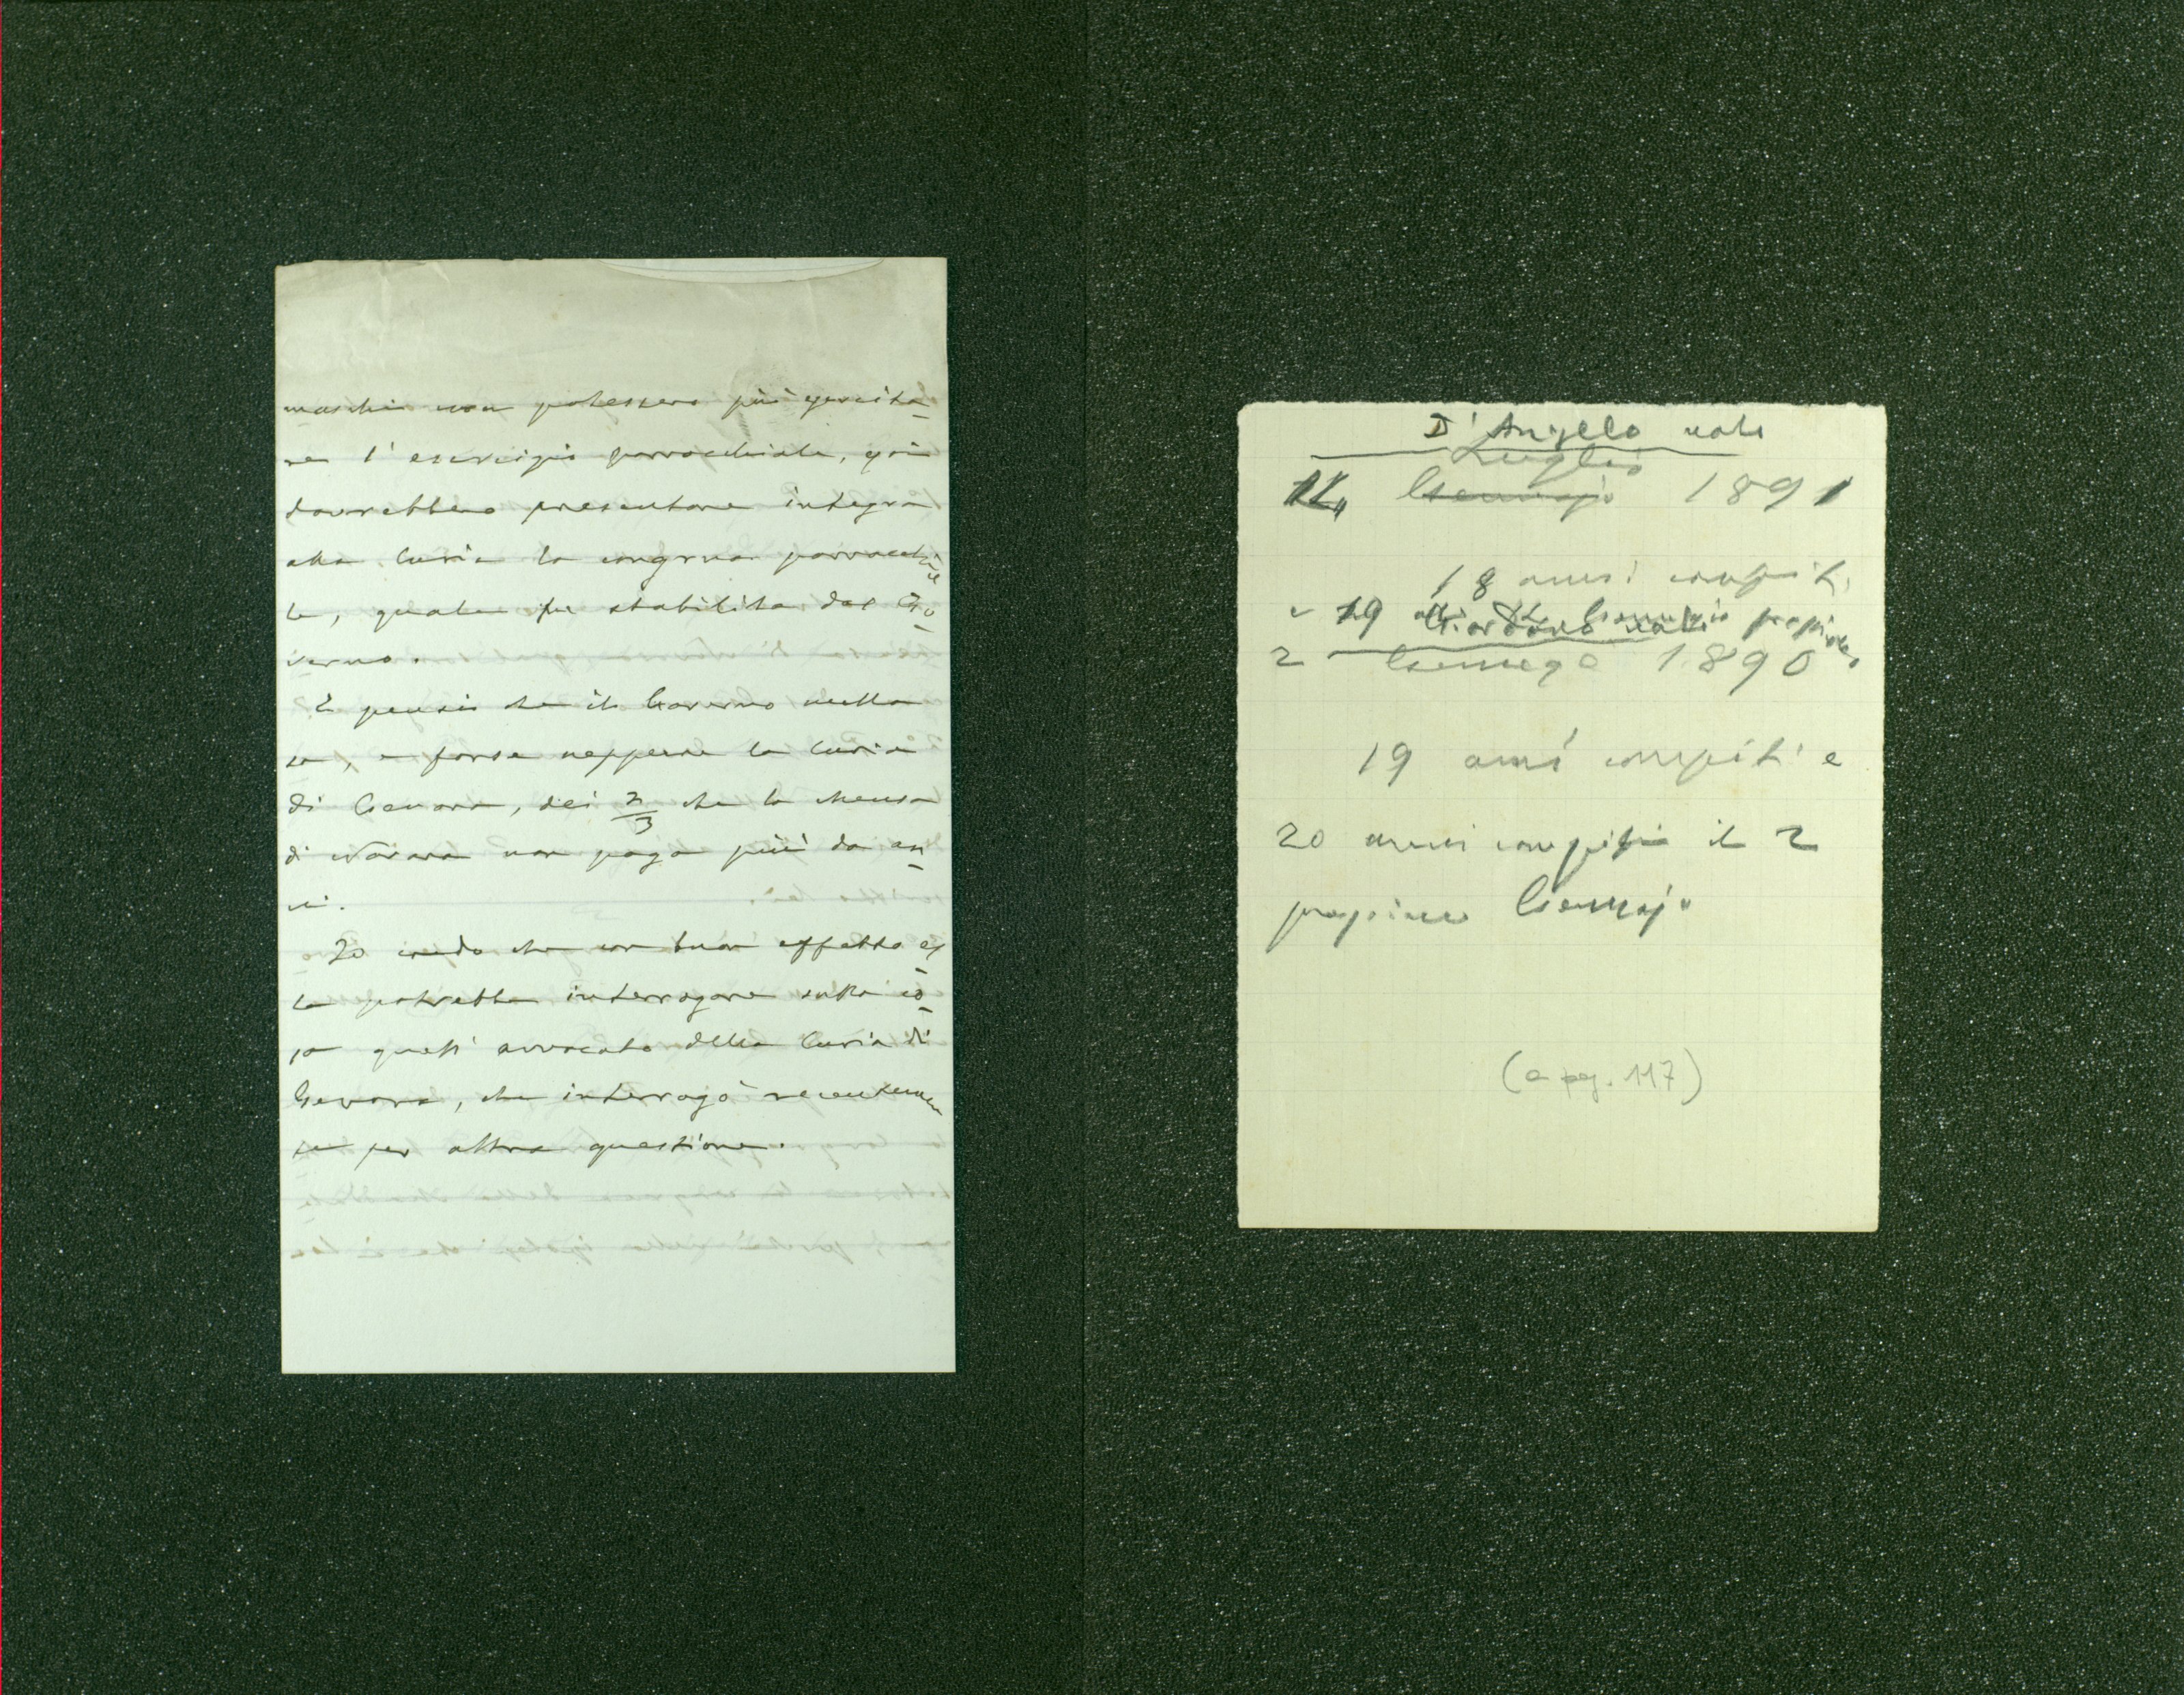 maschi non potessero più esercita-
re l'esercizio parrocchiale, essi
dovrebbero presentare integra
alla Curia la congrua parrocchia
le, quale fu stabilita dal Go-
verno.
E pensi che il Governo nulla
sa, e forse neppure la Curia
di Genova, dei 2/3 che la Mensa
di Novara non paga più da an-
ni.
Io credo che con buon effetto es-
sa potrebbe interrogare sulla co-
sa quell' avvocato della Curia di
Genova, che interrogò recentemen
te per altra questione.
D'Angelo nato
Luglio
Gennajo 1891
18 anni compiti,
e 19 alli Gennajo prossimo
Giordano nato
2 Gennajo 1890
19 anni compiti e
20 anni compiti il 2
prossimo Gennajo
(a pag. 117)